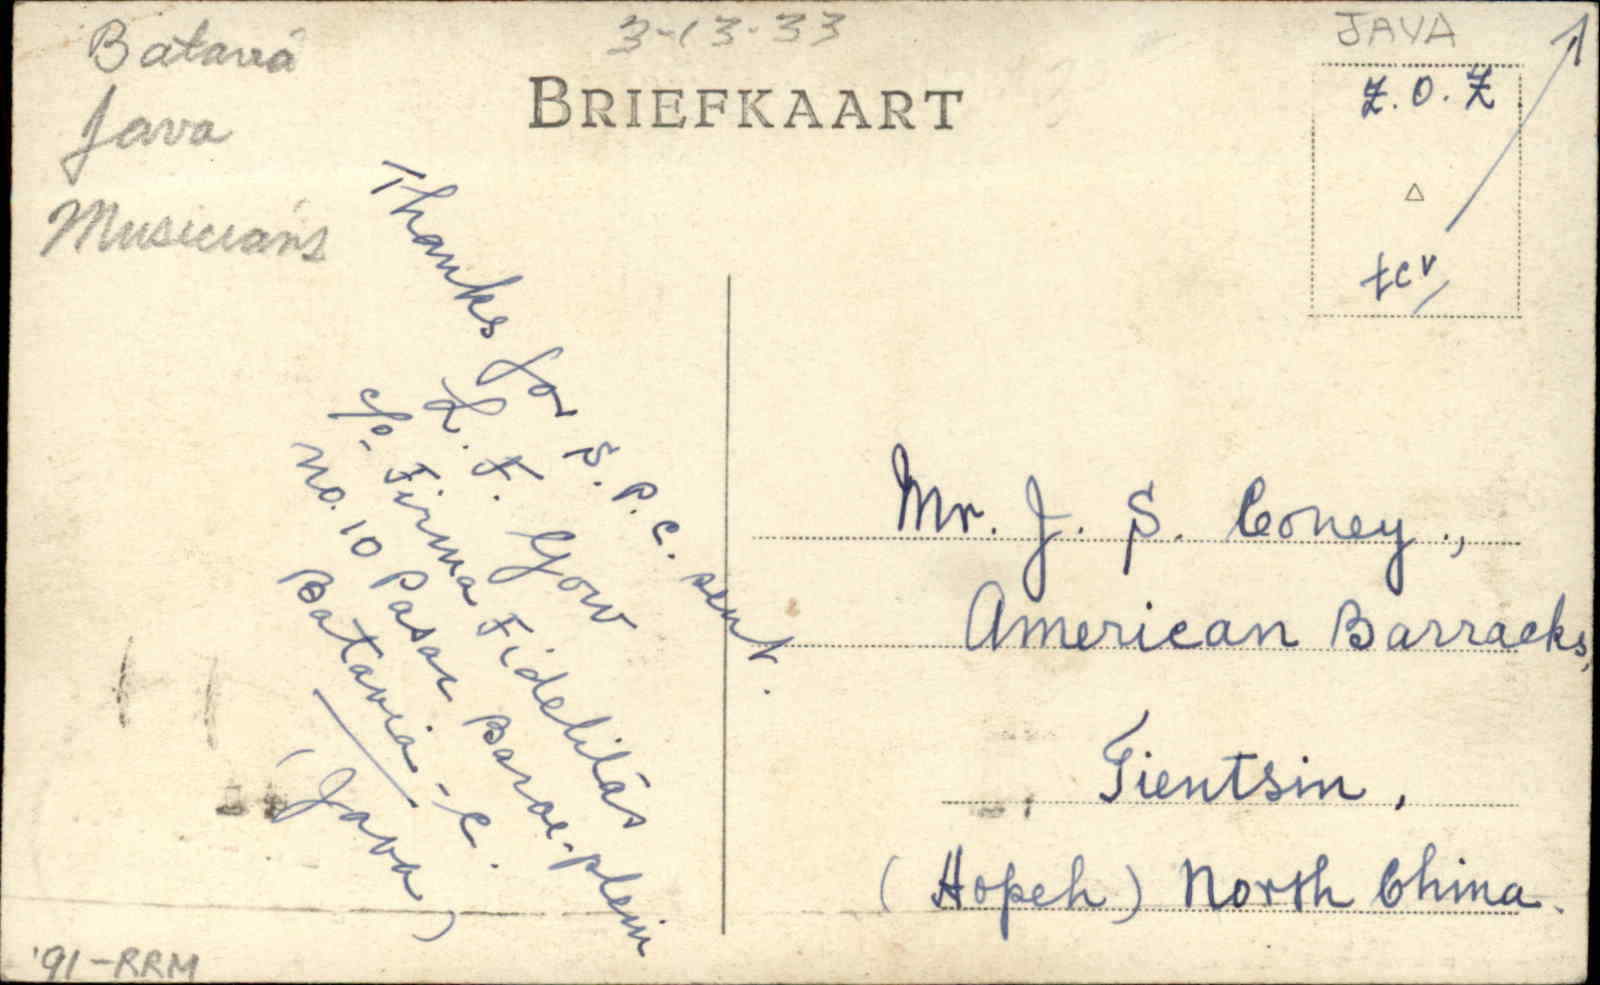 Batavia
Java
Musicians
3-13-33
BRIEFKAART
JAVA
Z.O.Z
TCV
Thanks for S.P.C. sent.
L. F. Gow
c/o. Firma Fidelitas
No. 10 Pasar Baroe-plein
Batavia-C.
(Java)
Mr. J. S. Coney.,
American Barracks,
Tientsin,
(Hopeh) North China.
'91-RRM